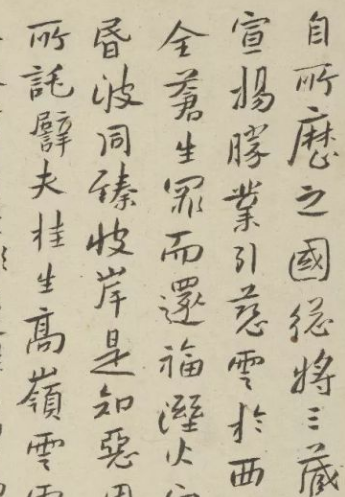 自所歷之國總將三藏
宣揚勝業引慈雲於西
全蒼生罪而還福溼火
昏波同臻彼岸是知惡
所託譬夫桂生高嶺雲